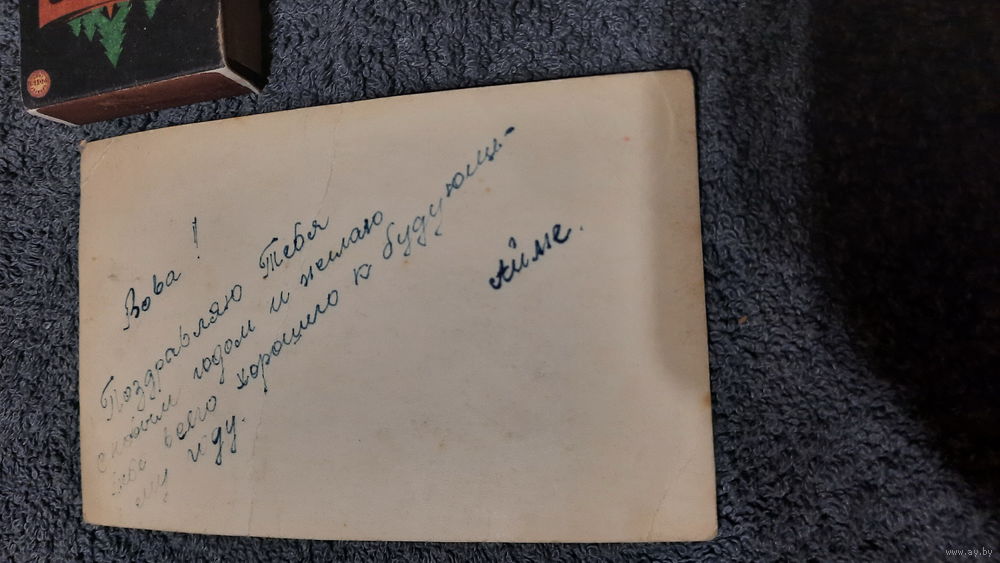 Вова!
Поздравляю Тебя
с новым годом и желаю
тебе всего хорошего к будующ-
ему году.
Айме.
www.ay.by